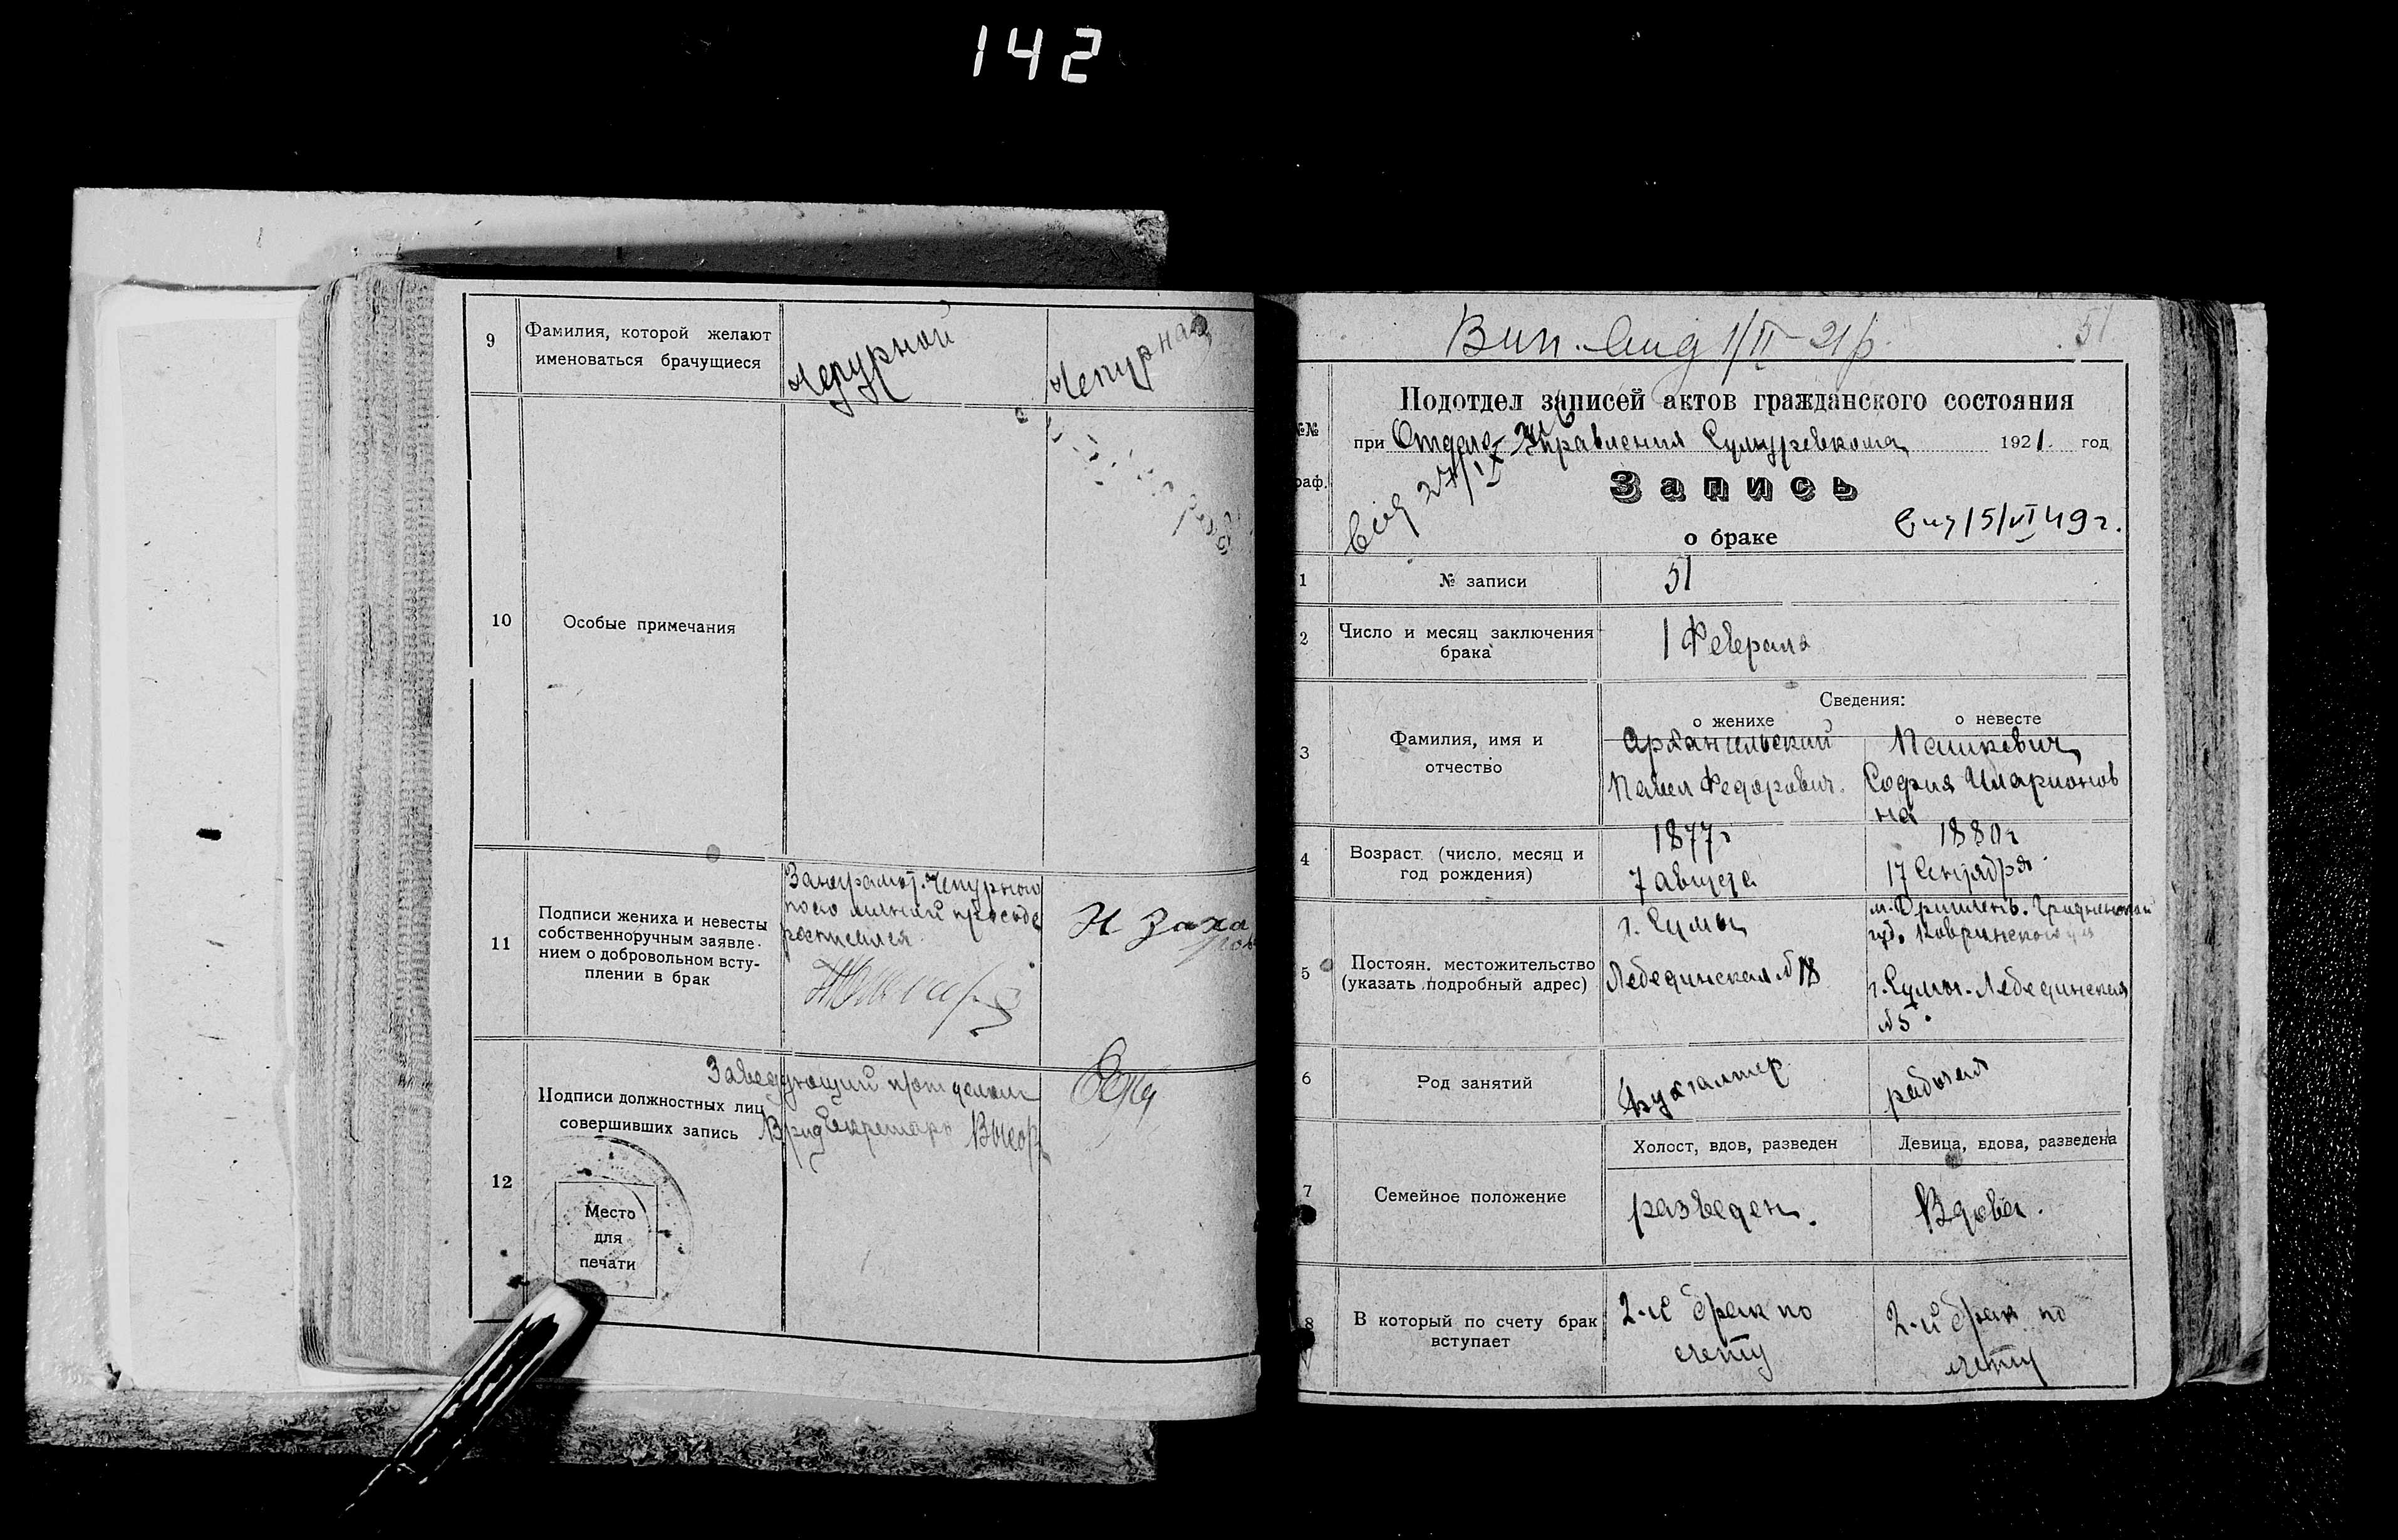 142
9
Фамилия, которой желают
именоваться брачущиеся
Чепурной
Чепурная
10
Особые примечания
11
Подписи жениха и невесты
собственноручным заявле-
нием о добровольном всту-
плении в брак
За неграмот. Чепурного
по его личной просьбе
росписался
Н Заха
ров
12
Подписи должностных лиц
совершивших запись
Заведующий подотделом
Врид Секретарь
Место
для
печати
51
Вип. 1/II-21р.
Подотдел записей актов гражданского состояния
№№
граф.
при Отделе Управления Сумуревкома 1921 год
27/IX
Запись
о браке
15/VI 49 г.
1
№ записи
51
2
Число и месяц заключения
брака
1 Февраля
Сведения:
о женихе
о невесте
3
Фамилия, имя и
отчество
Архангельский
Павел Федорович.
Пашкевич
София Иларионов
на
4
Возраст (число, месяц и
год рождения)
1877 г
7 августа
1880 г
17 Сентября
5
Постоян. местожительство
(указать подробный адрес)
г. Сумы
Лебединская № 18
губ. Кобринского у
г. Сумы. Лебединская
№ 5
6
Род занятий
Бухгалтер
рабочая
7
Семейное положение
Холост, вдов, разведен
Девица, вдова, разведена
разведен.
Вдова.
8
В который по счету брак
вступает
2-й брак по
счету
2-й брак по
счету